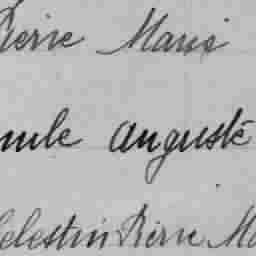 Pierre Marie
mile Auguste
Celestin Pierre Ma